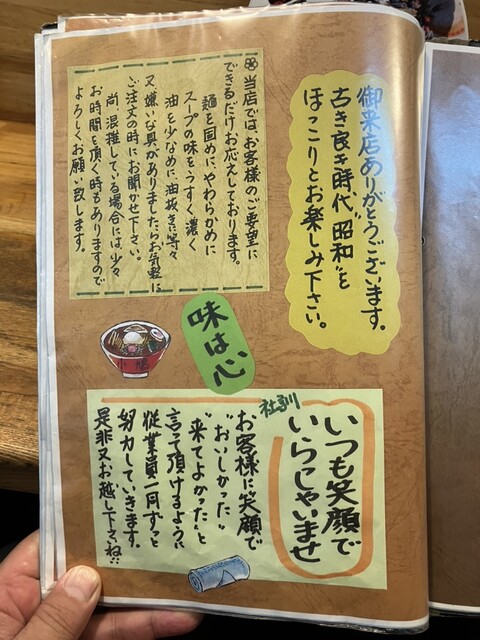 御来店ありがとうございます。
古き良き時代"昭和"を
ほっこりとお楽しみ下さい。
当店では、お客様のご要望に
できるだけお応えしております。
麺を固めにやわらかめに
スープの味をうすく、濃く
油を少なめに油抜き等々
又嫌いな具がありましたらお気軽に
ご注文の時にお聞かせ下さい。
尚、混雑している場合には少々
お時間を頂く時もありますので
よろしくお願い致します。
味は心
社訓
いつも笑顔で
いらっしゃいませ
お客様に笑顔で
"おいしかった"
"来てよかった"と
言って頂けるように
従業員一同ずっと
努力していきます。
是非又お越し下さいね!!